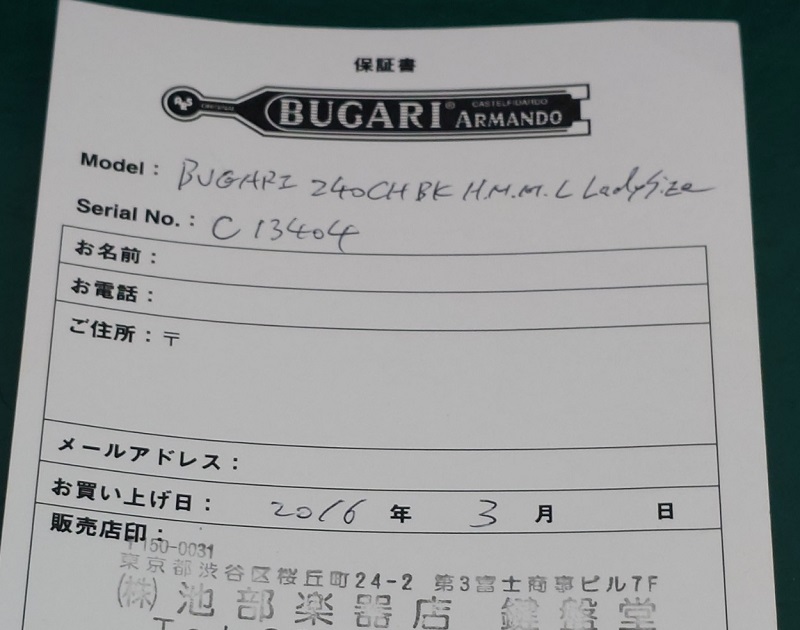 保証書
BUGARI® CASTELFIDARDO ARMANDO
Model : BUGARI 240CH BK H.M.M.L LadySize
Serial No. : C 13404
お名前 :
お電話 :
ご住所 : 〒
メールアドレス :
お買い上げ日 : 2016 年 3 月 日
販売店印 :
〒150-0031
東京都渋谷区桜丘町24-2 第3富士商事ビル7F
(株) 池部楽器店 鍵盤堂